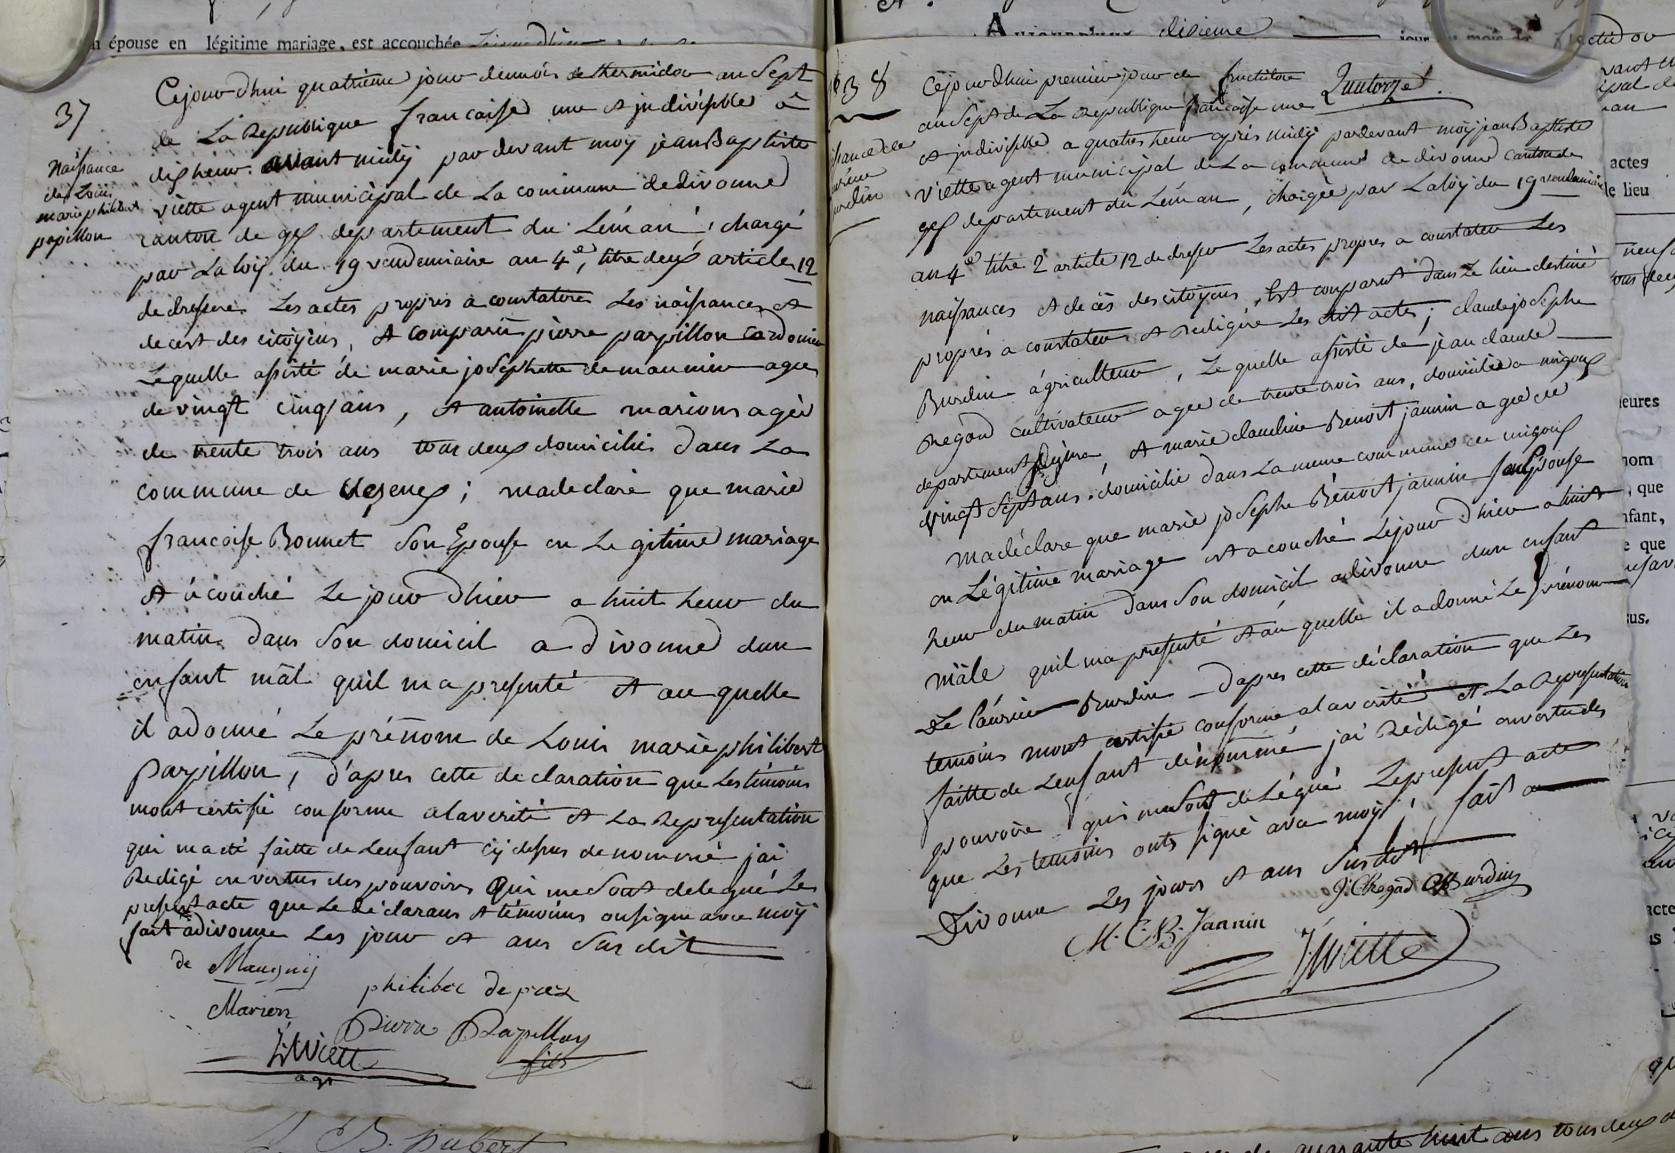 épouse en légitime mariage, est accouchée
37
Naissance
de Louis
marie philibert
papillon
Cejourdhui quatrieme jour du mois de thermidor an Sept
de La Republique francaise une et indivisible à
dix heur avant midy par devant moy jean Baptiste
viette agent municipal de La commune de divonne
canton de gex departement du Léman, chargé
par La loy du 19 vendemiaire an 4e, titre deux article 12
de dresser Les actes propres a constater Les naissances et
decest des citoyens, et comparu pierre papillon cardonnier
Lequelle assisté de marie josephette de maunier agee
de vingt cinq ans, et antoinette marions agée
de trente trois ans tous deux domicilié dans La
commune de vesenex; ma declaré que marie
francoise Bonnet son Epouse en Legitime mariage
et acouché Le jour Dhier a huit heur du
matin dans son domicil a divonne dun
enfant mâl quil ma presenté et au quelle
il adonné Le prénom de Louis marie philibert
Papillon, d'apres cette declaration que Les témoins
mont certifié conforme alaverité et La Representation
qui ma été faitte de Lenfant cy desus denommé jai
Redigé en vertus des pouvoirs qui me sont delegué Le
present acte que Le déclarans et témoins onsigné avec moy
fait a divonne Les jour et ans Susdit
de Maugny
Marion
philiber depraz
Pierre Papillon
fils
J. Viett
agt
B. hubert
Aujourd'hui dixieme jour du mois de
38
Cejourdhui premier jour de fructidor Quatorze
an Sept de La Republique francaise une
et indivisible a quatre heur après midy pardevant moy jean Baptiste
Viette agent municipal de La commune de divonne canton de
gex departement du Léman, chargée par La loy du 19 vendemiaire
an 4e titre 2 article 12 de dresser Les actes propres a constater Les
naissances et decès des citoyens, Est comparut dans Le lieu destiné
propres a constater et Redigére Les dit actes; claude joseph
Burdin agriculteur, Le quelle assisté de jean claude
Regad cultivateur agee de trente trois ans, domicilié a mijoux
departement, et marie claudine Benoit jannin agee de
vingt Sept ans, domicilié dans La meme commune de mijoux
ma déclare que marie josephe Benoit jannin son Epouse
en Légitime mariage est acouché Lejour Dhier a huit
heur du matin dans son domicil adivonne dun enfant
mâle quil ma presenté et au quelle il adonné Le prénom
de Burdin d'apres cette déclaration que Les
temoins mont certifié conforme alaverité et La Representation
faitte de Lenfant dénommé jai Rédigé envertu des
pouvoire qui me Sont delégué Le present acte
que Les temoins onts signé avec moy, fait a
Divonne Les jours et ans Susdit
M. C. B. Jannin
J. C. Regad
Burdin
J. Viette
actes
le lieu
quarante huit ans tous deux